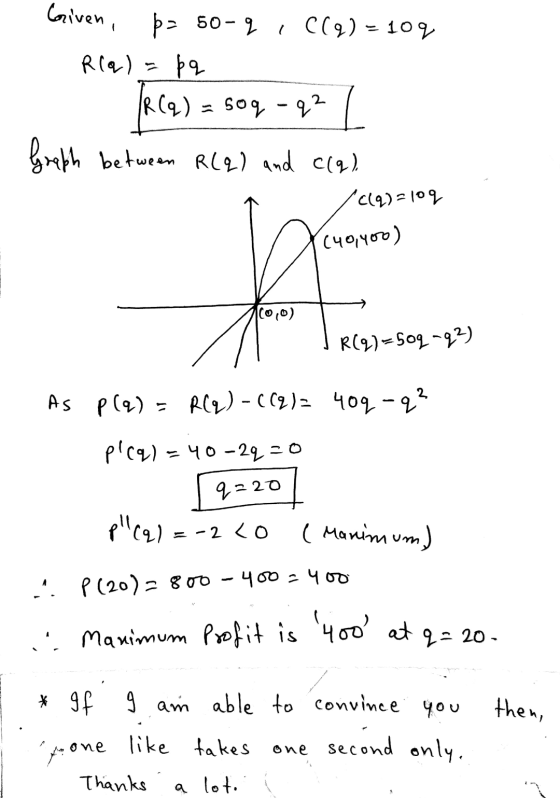 Given, p = 50 - q , C(q) = 10q
R(q) = pq
R(q) = 50q - q²
Graph between R(q) and C(q).
C(q) = 10q
(40,400)
(0,0)
R(q) = 50q - q²)
As P(q) = R(q) - C(q) = 40q - q²
P'(q) = 40 - 2q = 0
q = 20
P''(q) = -2 < 0 (Maximum)
∴ P(20) = 800 - 400 = 400
∴ Maximum Profit is '400' at q = 20.
* If I am able to convince you then,
one like takes one second only.
Thanks a lot.